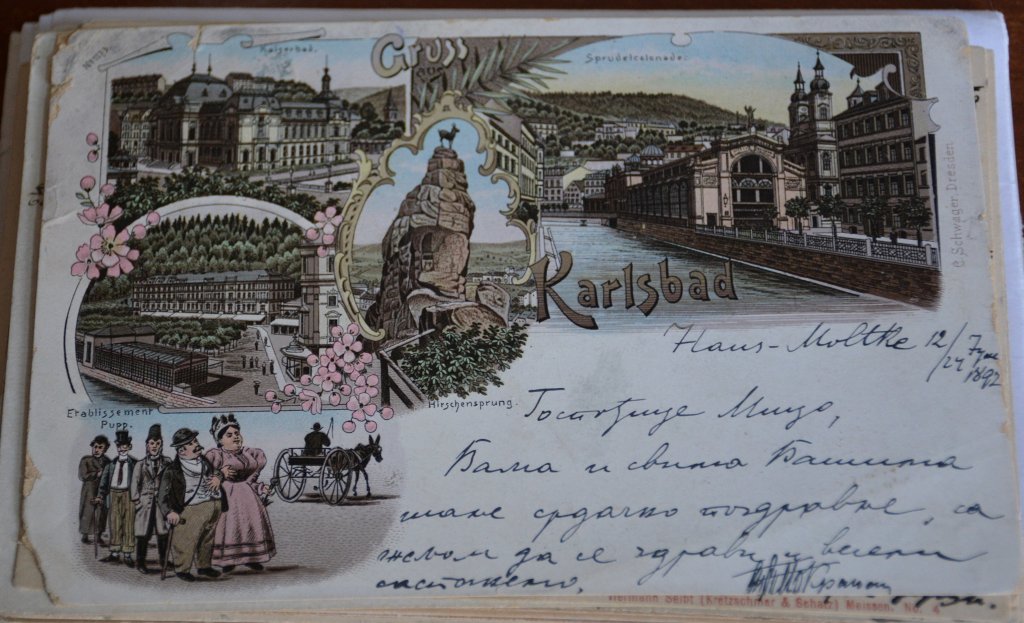 Gruss
aus
Karlsbad
Kaiserbad.
Sprudelcolonade.
Hirschensprung.
Etablissement
Pupp.
C. Schwager, Dresden.
Haus-Moltke 12/24
1892
Госпођице Мицо,
Вама и свима Вашима
шаље срдачно поздравље, са
жељом да се здрави и весели
састанемо,
Hermann Seibt (Kretzschmar & Schatz) Meissen. No. 4